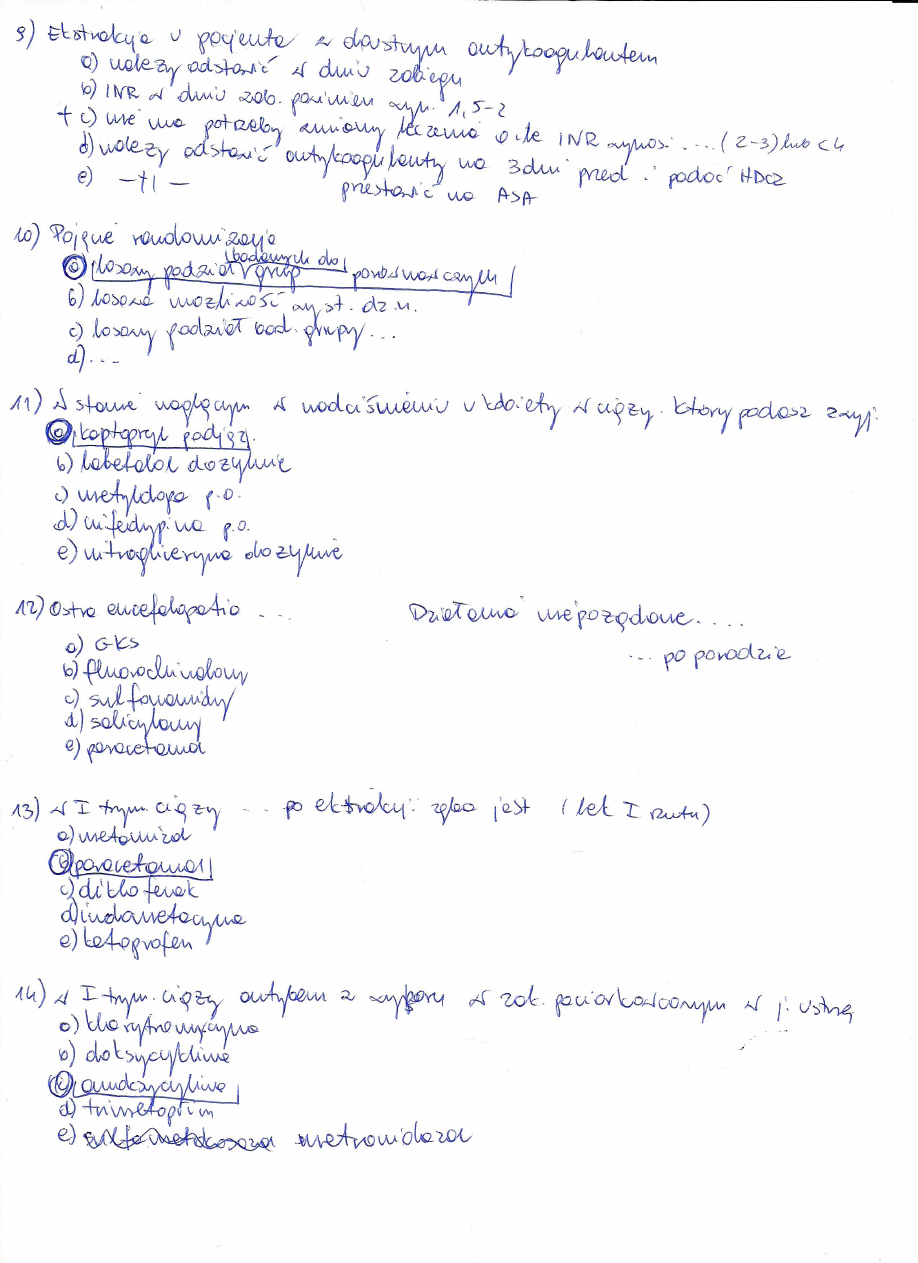 9) Ekstrakcja u pacjenta z doustnym antykoagulantem
a) należy odstawić w dniu zabiegu
b) INR w dniu zab. powinien wyn. 1,5-2
+ c) nie ma potrzeby zmiany leczenia o ile INR wynosi .... (2-3) lub < 4
d) należy odstawić antykoagulanty na 3 dni przed i podać HDCz
e) -11- przestawić na ASA
10) Pojęcie randomizacja
a) losowy podział badanych do grup porównawczych
b) losowa możliwość wyst. dz. n.
c) losowy podział bad. grupy ...
d) ...
11) W stanie naglącym w nadciśnieniu u kobiety w ciąży. Który podasz
a) kaptopryl podjęz.
b) labetalol dożylnie
c) metyldopa p.o.
d) nifedypina p.o.
e) nitrogliceryna dożylnie
12) Ostra encefalopatia ... Działania niepożądane....
... po porodzie
a) GKS
b) fluorochinolony
c) sulfonamidy
d) salicylany
e) paracetamol
13) W I trym. ciąży ... po ekstrakcji zęba jest (lek I rzutu)
a) metamizol
b) paracetamol
c) diklofenak
d) indometacyna
e) ketoprofen
14) W I trym. ciąży antybem z wyboru w zak. paciorkowcowym w j. ustnej
a) klarytromycyna
b) doksycyklina
c) amoksycylina
d) trimetoprim
e) metronidazol